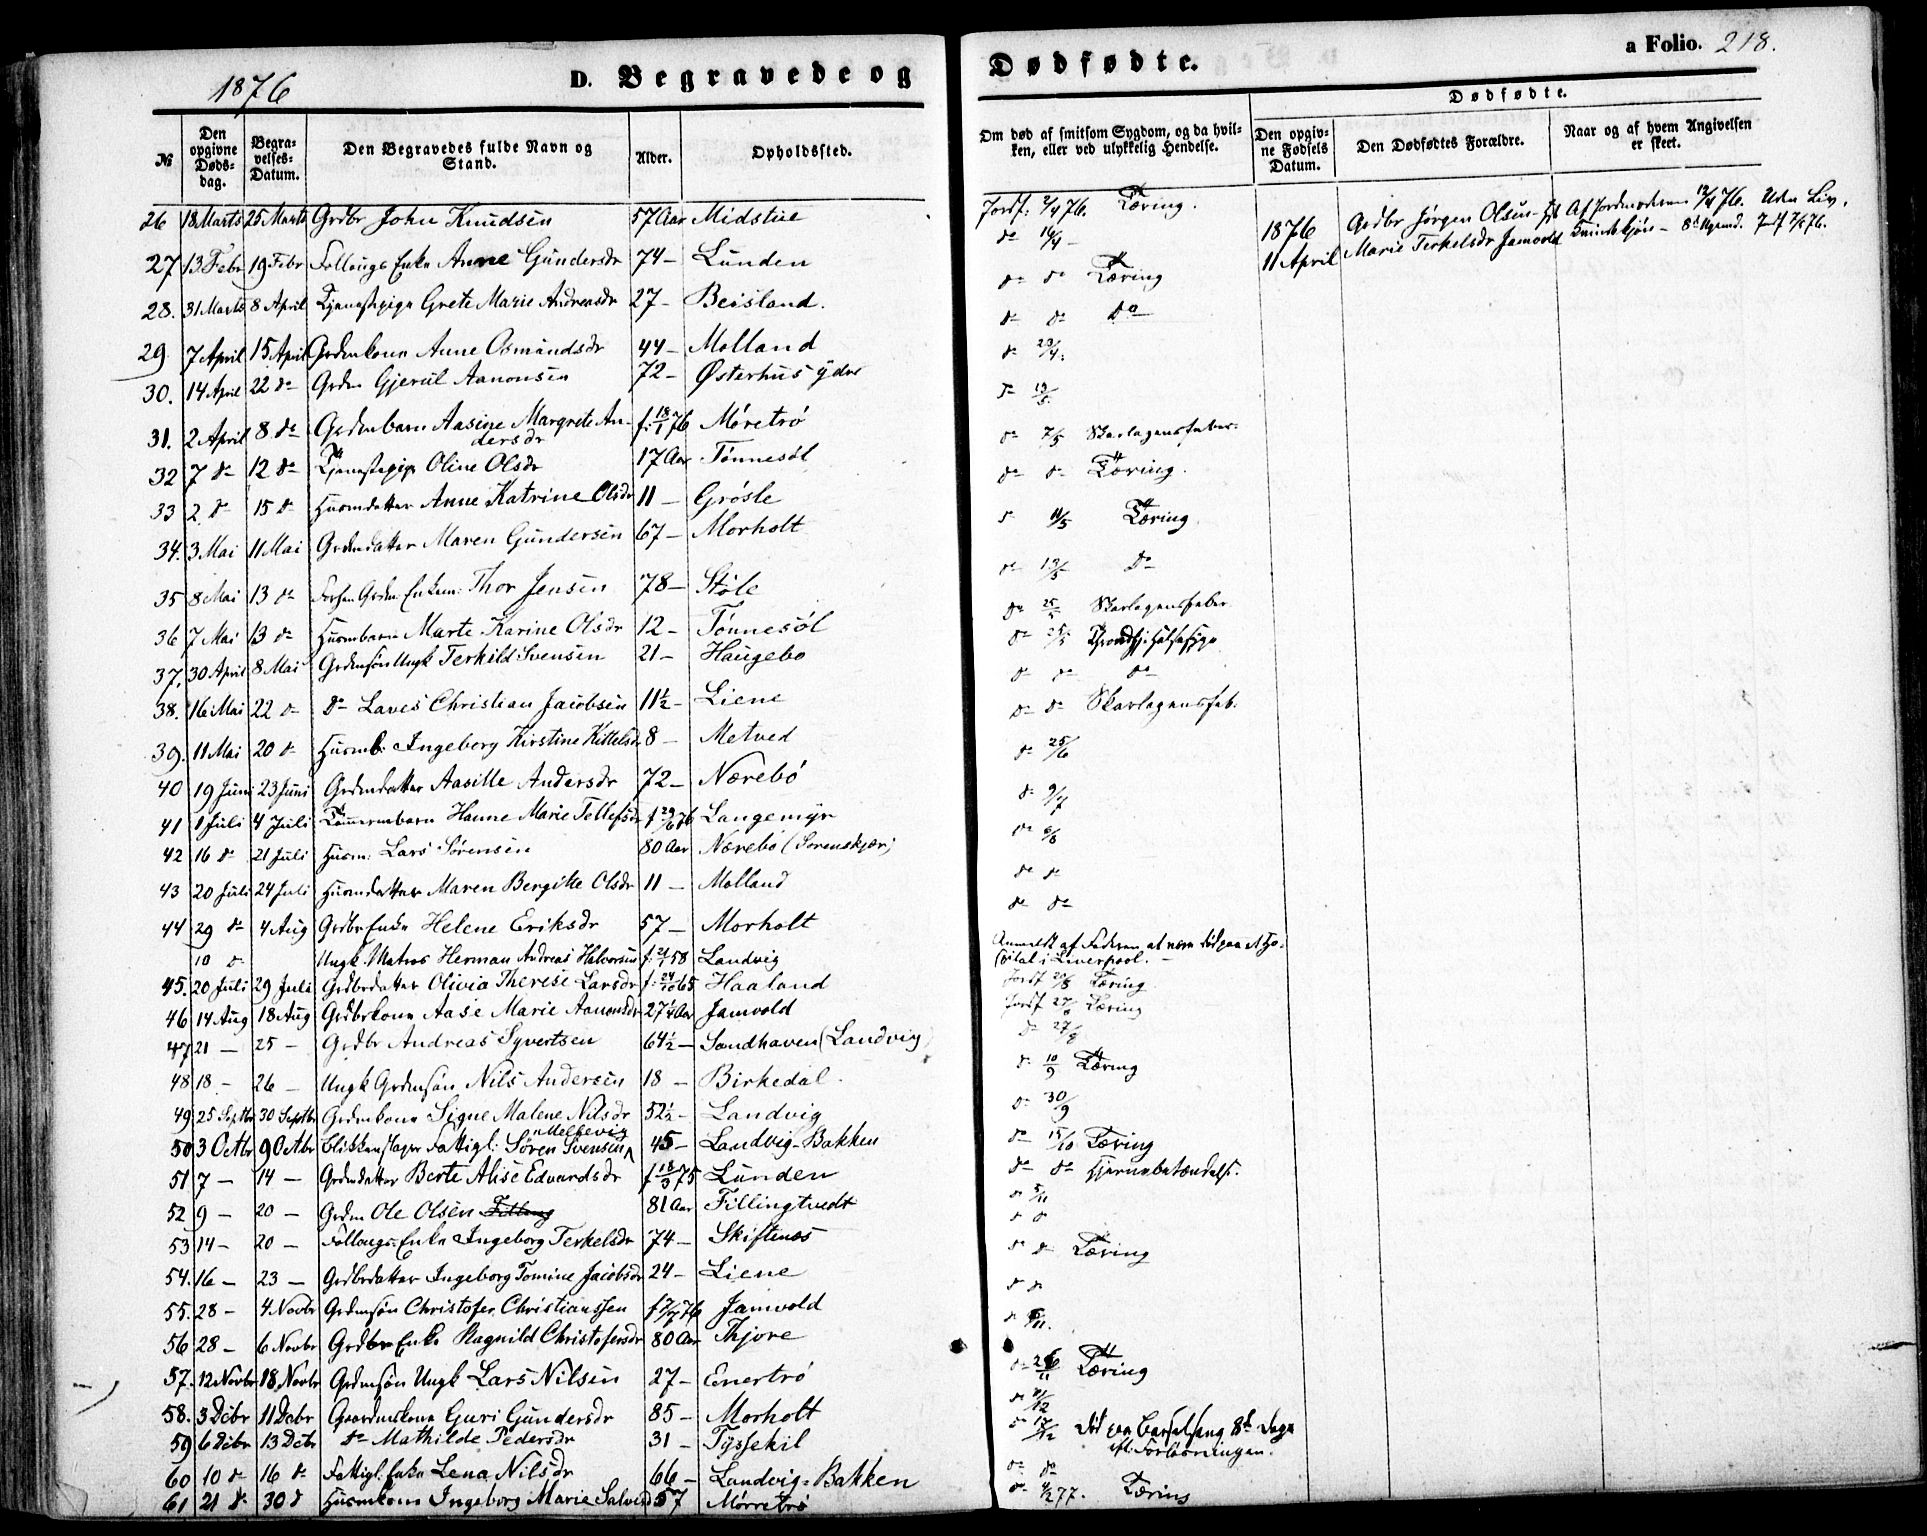 1876
D. Begravede og
Dødfødte.
a Folio. 218.
№
Den opgivne Døds-dag.
Begra-velses-Datum.
Den Begravedes fulde Navn og Stand.
Alder.
Opholdssted.
Om død af smitsom Sygdom, og da hvil-ken, eller ved ulykkelig Hendelse.
Dødfødte.
Den opgiv-ne Fødsels Datum.
Den Dødfødtes Forældre.
Naar og af hvem Angivelsen er skeet.
26 18 Marts 25 Marts Grdbr John Knudsen 57 Aar Midstue Jordf. 2/4 76. Tæring.
1876 11 April Grdbr Jørgen Olsen Marie Terkelsdr Jamvold
27 13 Febr 19 Febr Follougs Enke Anne Gundersdr 74 – Lunden do 16/4 –
28. 31 Marts 8 April Tjenestepige Grete Marie Andreasdr 27 – Beisland. do do Tæring
29 7 April 15 April Grdmkone Anne Osmundsdr 44 – Molland do do do
30. 14 April 22 do Grdm Gjerul Aanonsen 72 – Østerhus ydre do 23/4.
31. 2 April 8 do Grdmbarn Aasine Margrete Andersdr f. 18/1 76 Møretrø
32 7 do 12 do Tjenestepige Oline Olsdr 17 Aar Tønnesøl do 7/5 Skarlagensfeber
33 2 do 15 do Husmdatter Anne Katrine Olsdr 11 – Grøsle do do Tæring.
34. 3 Mai 11 Mai Grdmdatter Maren Gundersen 67 – Morholt 14/5 Tæring
35 8 Mai 13 do Grdm Enkem: Thor Jensen 78 – Støle do
36 7 Mai 13 do Husmbarn Marte Karine Olsdr 12 – Tønnesøl Skarlagensfeber
37. 30 April 8 Mai Grdmsøn Ungk Terkild Svensen 21 – Haugebo
38. 16 Mai 22 do do Laves Christian Jacobsen 11½ – Liene do do do
39. 11 Mai 20 do Husmb: Ingeborg Kirstine Kittelsdr 8 – Metved do do Skarlagensfeb.
40 19 Juni 23 Juni Grdmdatter Aasille Andersdr 72 – Nærebø do 25/6
41 1 Juli 4 Juli Tømmermbarn Hanne Marie Tellefsdr f 29/6 76 Langemyr do 9/7
42 16 do 21 Juli Husm: Lars Sørensen 80 Aar Nærebø (Sorenskjær) do 6/8
43 20 Juli 24 Juli Husmdatter Maren Bergitte Olsdr 11 – Molland do do
44 29 do 4 Aug Grdbr Enke Helene Eriksdr 57 – Morholt do do
10 do Ungk. Matros Herman Andreas Halvorsen f. 58 Landvig Anmeldt af Faderen at være død paa et Ho-spital i Liverpool. –
45. 20 Juli 29 Juli Grdbrdatter Olivia Therese Larsdr f. 65 Haaland Jordf 20/8 Tæring
46 14 Aug 18 Aug Grdbrkone Aase Marie Aanonsdr 27¼ Aar Jamvold Jordf 27/8 Tæring
47 21 – 25 – Grdbr Andreas Syvertsen 64½ – Sandhaven (Landvig) do 27/8
48 18 – 26 – Ungk Grdmsøn Nils Andersen 18 – Birkedal do 10/9 Tæring
49 25 Septbr 30 Septbr Grdmkone Signe Malene Nilsdr 52½ – Landvig do 30/9
50 3 Octbr 9 Octbr Blikkenslager Fattigl: Søren Svensen Melkevig 45 – Landvig-Bakken do 15/10 Tæring
51 7 – 14 – Grdmdatter Berte Alise Edvardsdr f 18/3 75 Lunden do do Hjernebetændelse.
52 9 – 20 – Grdm Ole Olsen 81 Aar Fillingtvedt do 5/11
53 14 – 20 – Follougs-Enke Ingeborg Terkelsdr 74 – Skiftenes do do
54. 16 – 23 – Grdbrdatter Ingeborg Tomine Jacobsdr 24 – Liene do do Tæring
55. 28 – 4 Novbr Grdmsøn Christofer Christianssen f 76 Jamvold do do
56 28 – 6 Novbr Grdbr Enke Ragnild Christofersdr 80 Aar Thjore
57. 12 Novbr 18 Novbr Grdmsøn Ungk Lars Nilsen 27 – Enertrø do 26/11 Tæring
58. 3 Debr 11 Debr Gaardmskone Guri Gundersdr 85 – Morholt
59 6 Debr 13 Debr do Mathilde Pedersdr 31 – Tyssekil do 17/12 Død paa Barselseng 8de Dage eft. Forløsningen.
60 10 do 16 do Fattigl. Enke Lena Nilsdr 66 – Landvig-Bakken do do
61 21 do 30 do Husmkone Ingeborg Marie Salvesdr 57 Mørretrø 77. Tæring